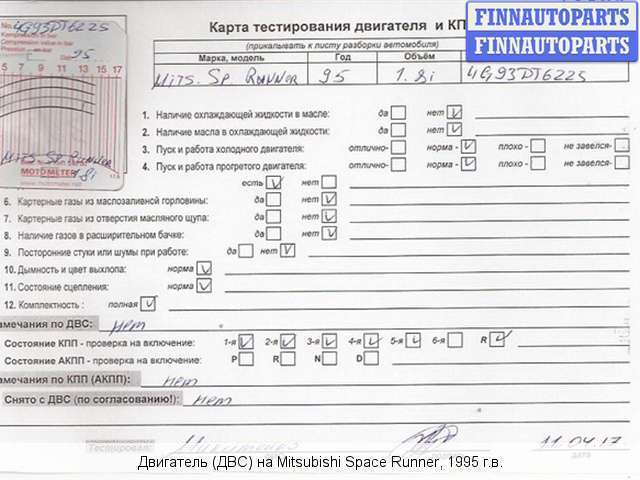 No. 4G93DT6225
Kompression in bar
Compression value in bar
Pression en bar
Date 95
5 7 9 11 13 15 17
Mits. Sp. Runner
1.8i
MOTOMETER
www.motometer.net
FINNAUTOPARTS
FINNAUTOPARTS
Карта тестирования двигателя и КП
(прикалывать к листу разборки автомобиля)
Марка, модель Год Объём
Mits. Sp. Runner 95 1.8i 4G93DT6225
1. Наличие охлаждающей жидкости в масле: да нет V
2. Наличие масла в охлаждающей жидкости: да нет V
3. Пуск и работа холодного двигателя: отлично- норма - V плохо - не завелся-
4. Пуск и работа прогретого двигателя: отлично- норма - V плохо - не завелся-
есть V нет
6. Картерные газы из маслозаливной горловины: да нет V
7. Картерные газы из отверстия масляного щупа: да нет V
8. Наличие газов в расширительном бачке: да нет V
9. Посторонние стуки или шумы при работе: да нет V
10. Дымность и цвет выхлопа: норма V
11. Состояние сцепления: норма V
12. Комплектность : полная V
амечания по ДВС: нет
Состояние КПП - проверка на включение: 1-я V 2-я V 3-я V 4-я V 5-я V 6-я R V
Состояние АКПП - проверка на включение: P R N D
амечания по КПП (АКПП): нет
Снято с ДВС (по согласованию!): нет
Тестировал: 11.04.17
дата
Двигатель (ДВС) на Mitsubishi Space Runner, 1995 г.в.